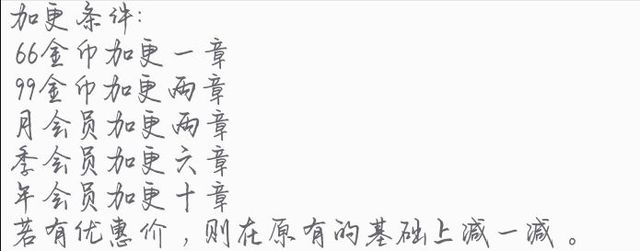 加更条件:
66金币加更一章
99金币加更两章
月会员加更两章
季会员加更六章
年会员加更十章
若有优惠价，则在原有的基础上减一减。